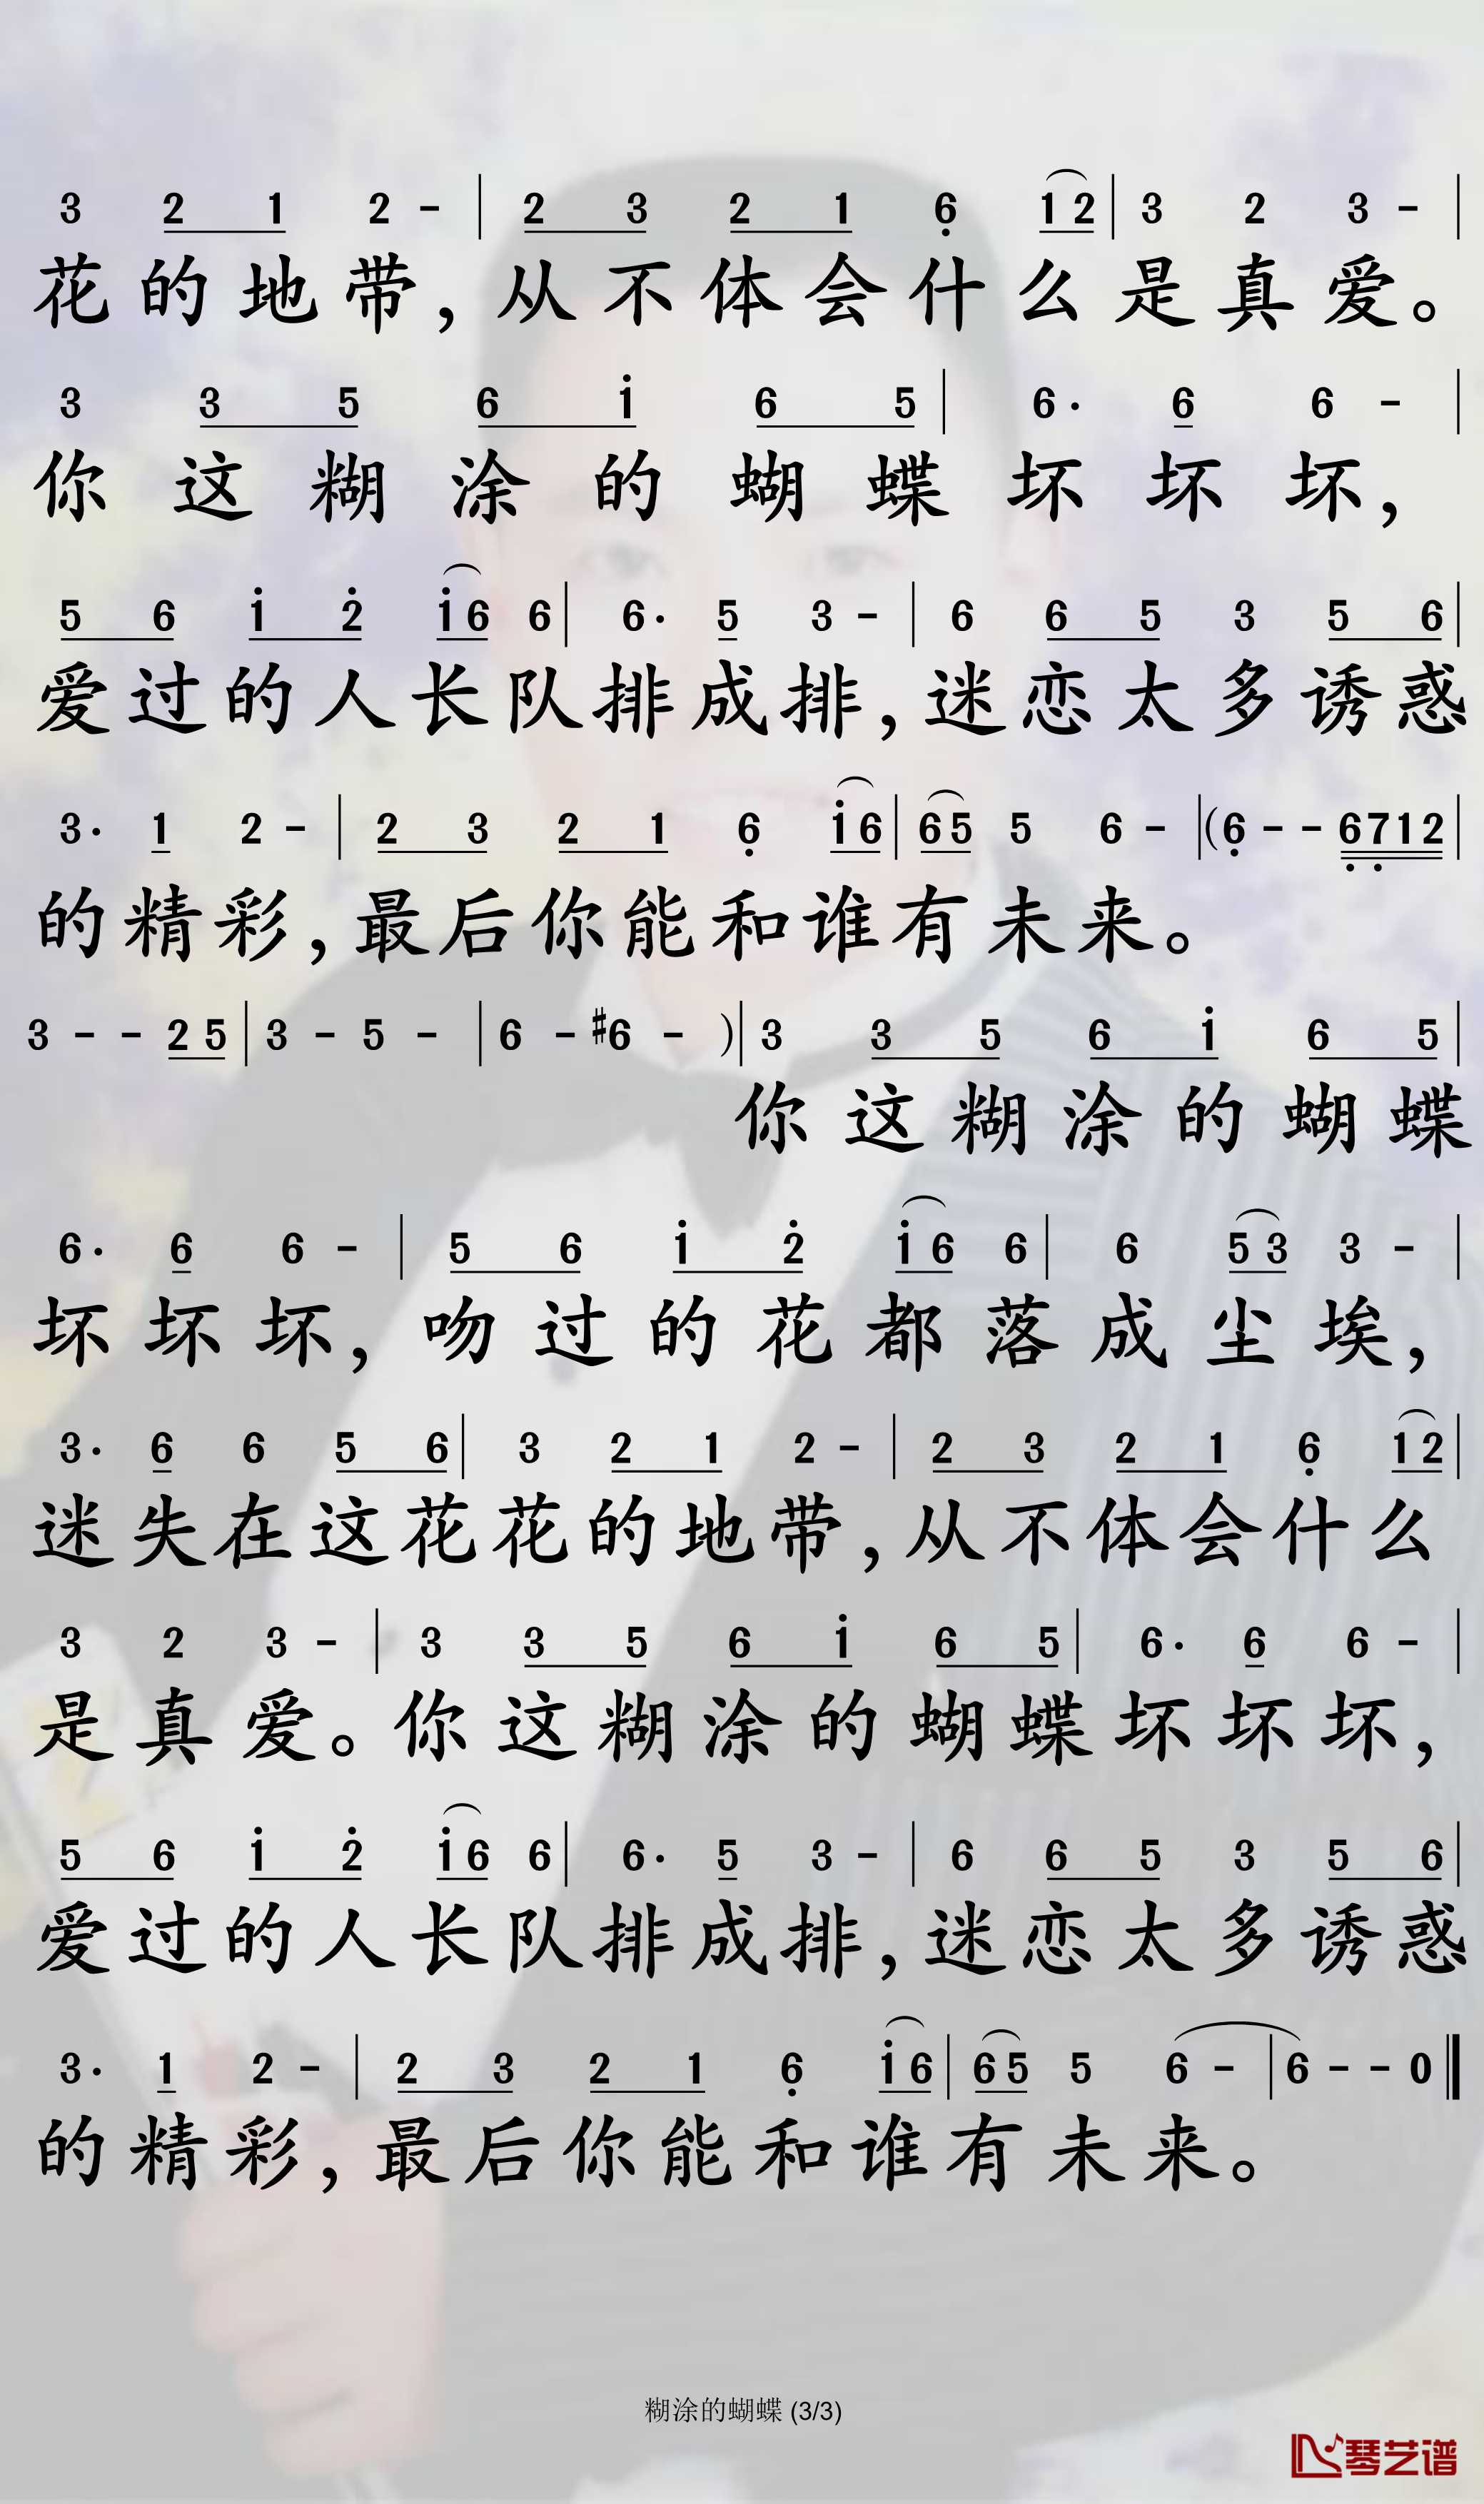 3 2 1 2 - | 2 3 2 1 6 1 2 | 3 2 3 - |
花的地带，从不体会什么是真爱。
3 3 5 6 i 6 5 | 6· 6 6 - |
你这糊涂的蝴蝶坏坏坏，
5 6 i 2 i 6 6 | 6· 5 3 - | 6 6 5 3 5 6 |
爱过的人长队排成排，迷恋太多诱惑
3· 1 2 - | 2 3 2 1 6 i 6 | 6 5 5 6 - | (6 - - 6 7 1 2 |
的精彩，最后你能和谁有未来。
3 - - 2 5 | 3 - 5 - | 6 - #6 - ) | 3 3 5 6 i 6 5 |
你这糊涂的蝴蝶
6· 6 6 - | 5 6 i 2 i 6 6 | 6 5 3 3 - |
坏坏坏，吻过的花都落成尘埃，
3· 6 6 5 6 | 3 2 1 2 - | 2 3 2 1 6 1 2 |
迷失在这花花的地带，从不体会什么
3 2 3 - | 3 3 5 6 i 6 5 | 6· 6 6 - |
是真爱。你这糊涂的蝴蝶坏坏坏，
5 6 i 2 i 6 6 | 6· 5 3 - | 6 6 5 3 5 6 |
爱过的人长队排成排，迷恋太多诱惑
3· 1 2 - | 2 3 2 1 6 i 6 | 6 5 5 6 - | 6 - - 0 ‖
的精彩，最后你能和谁有未来。
糊涂的蝴蝶 (3/3)
琴艺谱